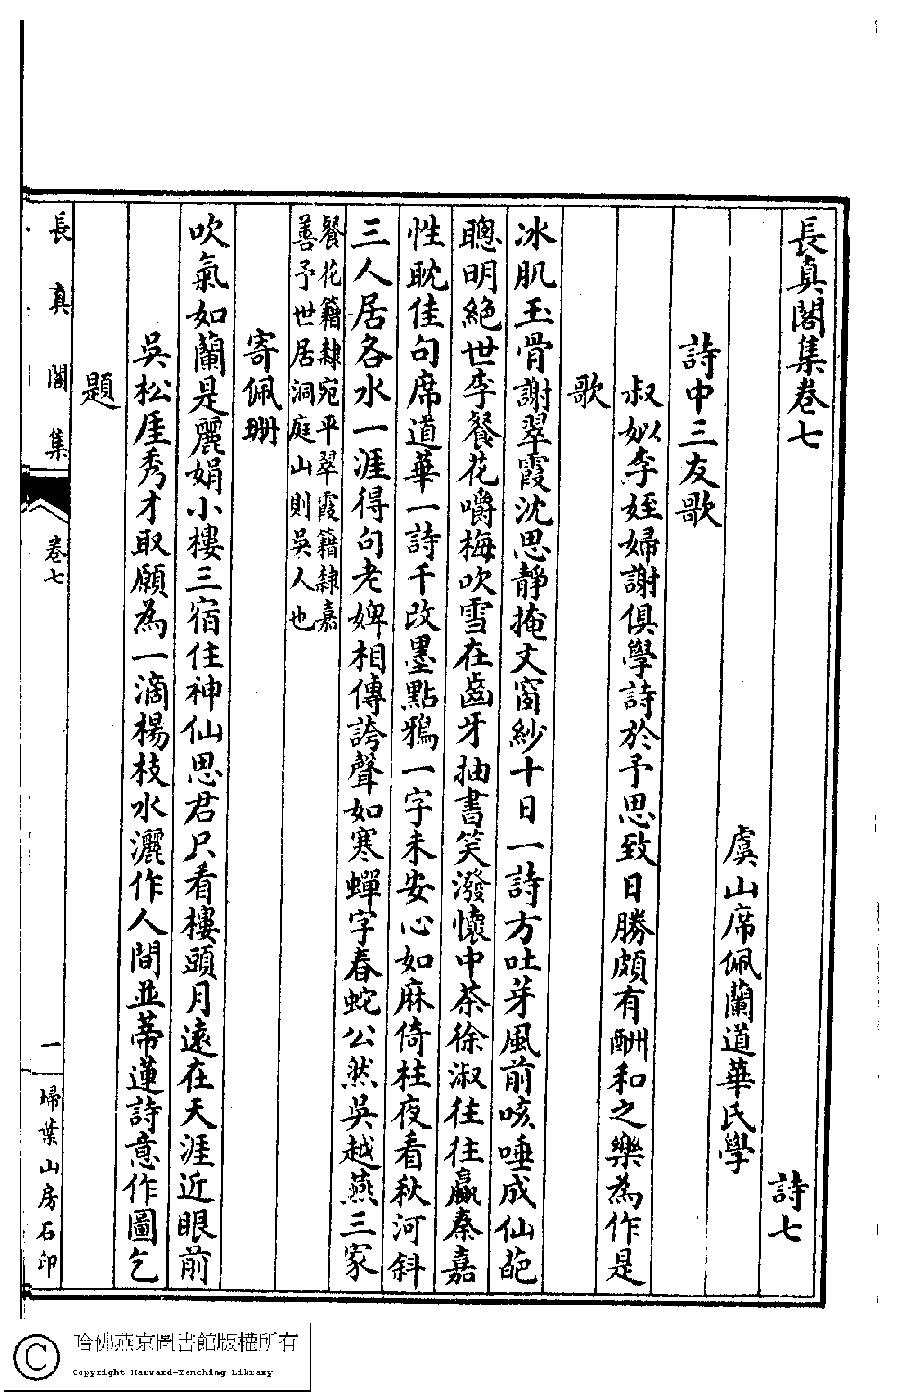 長真閣集卷七
詩七
虞山席佩蘭道華氏學
詩中三友歌
叔姒李姪婦謝俱學詩於予思致日勝頗有酬和之樂為作是
歌
冰肌玉骨謝翠霞沈思靜掩文窗紗十日一詩方吐芽風前咳唾成仙葩
聰明絕世李餐花嚼梅吹雪在齒牙抽書笑潑懷中茶徐淑往往贏秦嘉
性耽佳句席道華一詩千改墨點鴉一字未安心如麻倚柱夜看秋河斜
三人居各水一涯得句老婢相傳誇聲如寒蟬字春蛇公然吳越燕三家
餐花籍隸宛平翠霞籍隸嘉
善予世居洞庭山則吳人也
寄佩珊
吹氣如蘭是麗娟小樓三宿住神仙思君只看樓頭月遠在天涯近眼前
吳松厓秀才取願為一滴楊枝水灑作人間並蒂蓮詩意作圖乞
題
長真閣集
卷七
一
埽葉山房石印
哈佛燕京圖書館版權所有
Copyright Harvard-Yenching Library